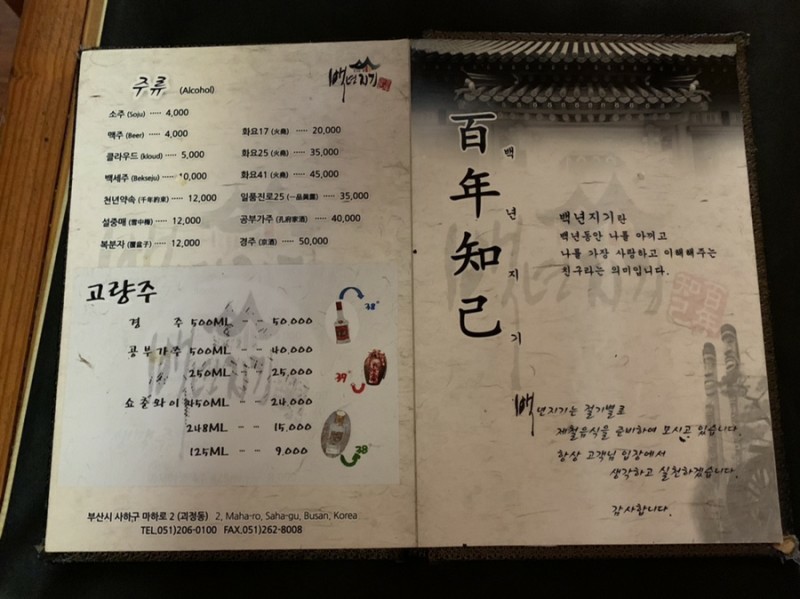 주류 (Alcohol)
백년지기
소주 (Soju) ····· 4,000
맥주 (Beer) ····· 4,000
클라우드 (kloud) ····· 5,000
백세주 (Bekseju) ····· 10,000
천년약속 (千年約束) ····· 12,000
설중매 (雪中梅) ····· 12,000
복분자 (覆盆子) ····· 12,000
화요17 (火堯) ····· 20,000
화요25 (火堯) ····· 35,000
화요41 (火堯) ····· 45,000
일품진로25 (一品眞露) ····· 35,000
공부가주 (孔府家酒) ····· 40,000
경주 (京酒) ····· 50,000
고량주
경 주 500ML - - 50,000
공부가주 500ML - - 40,000
250ML - - 25,000
쇼준와이 450ML - - 24,000
248ML - - 15,000
125ML - - 9,000
38°
39°
38°
부산시 사하구 마하로 2 (괴정동) 2, Maha-ro, Saha-gu, Busan, Korea
TEL.051)206-0100 FAX.051)262-8008
百年知己
백년지기
백년지기란
백년동안 나를 아껴고
나를 가장 사랑하고 이해해주는
친구라는 의미입니다.
백년지기는 절기별로
제철음식을 준비하여 모시고 있습니다.
항상 고객님 입장에서
생각하고 실천하겠습니다.
감사합니다.